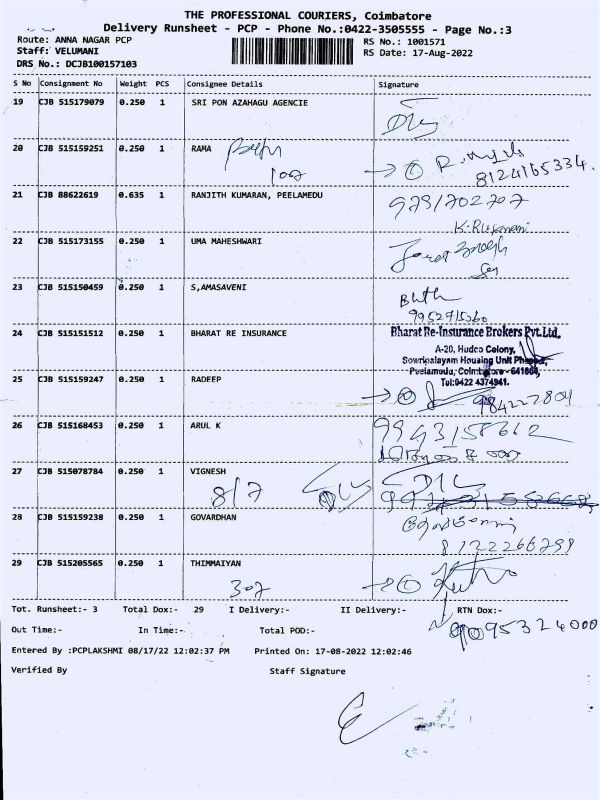 THE PROFESSIONAL COURIERS, Coimbatore
Delivery Runsheet - PCP - Phone No.:0422-3505555 - Page No.:3
Route: ANNA NAGAR PCP
RS No.: 1001571
Staff: VELUMANI
RS Date: 17-Aug-2022
DRS No.: DCJB100157103
S No Consignment No Weight PCS Consignee Details Signature
19 CJB 515179079 0.250 1 SRI PON AZAHAGU AGENCIE
20 CJB 515159251 0.250 1 RAMA
8124165334.
21 CJB 88622619 0.635 1 RANJITH KUMARAN, PEELAMEDU
22 CJB 515173155 0.250 1 UMA MAHESHWARI
23 CJB 515150459 0.250 1 S,AMASAVENI
24 CJB 515151512 0.250 1 BHARAT RE INSURANCE
Bharat Re-Insurance Brokers Pvt.Ltd.
A-20, Hudco Colony,
Sowripalayam Housing Unit Phase,
Peelamedu, Coimbatore -
Tel:0422 4374941.
25 CJB 515159247 0.250 1 RADEEP
26 CJB 515168453 0.250 1 ARUL K
27 CJB 515078784 0.250 1 VIGNESH
8/7
28 CJB 515159238 0.250 1 GOVARDHAN
8122266298
29 CJB 515205565 0.250 1 THIMMAIYAN
307
Tot. Runsheet:- 3 Total Dox:- 29 I Delivery:- II Delivery:- RTN Dox:-
Out Time:- In Time:- Total POD:-
Entered By :PCPLAKSHMI 08/17/22 12:02:37 PM Printed On: 17-08-2022 12:02:46
Verified By Staff Signature